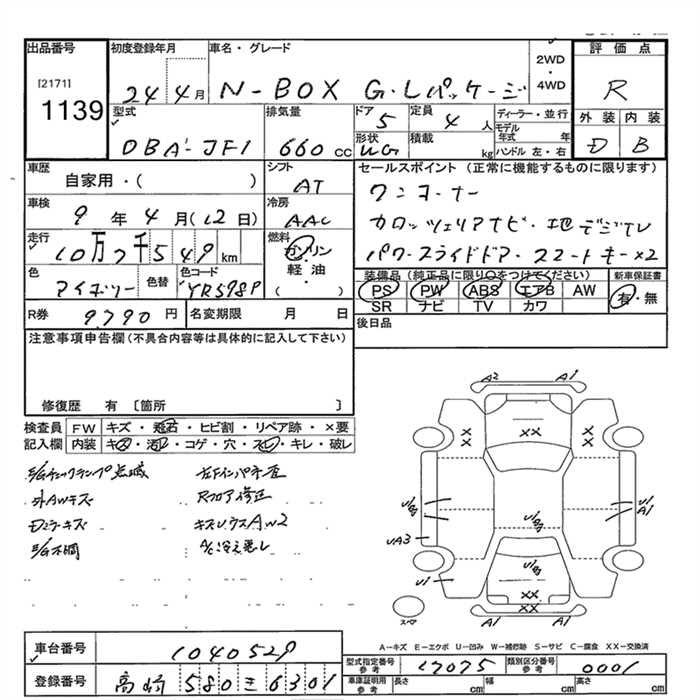 出品番号 初度登録年月 車名・グレード 評価点
[2171]
1139
24年4月 N-BOX G・Lパッケージ 2WD・4WD R
型式 排気量 ドア 定員 ディーラー・並行 外装 内装
DBA-JF1 660cc 5 4人 モデル年式 年 D B
形状 WG 積載 kg ハンドル 左・右
車歴 シフト セールスポイント(正常に機能するものに限ります)
自家用・( ) AT ワンオーナー
車検 冷房 カロッツェリアナビ・地デジTV
9年4月(12日) AAC パワースライドドア・スマートキー×2
走行 燃料
10万7千549km ガソリン
色 色替 色コード 軽油・
アイボリー YR578P ( )
装備品(純正品に限り○をつけてください) 新車保証書
PS PW ABS エアB AW 有・無
SR ナビ TV カワ
R券 9790円 名変期限 月 日 後日品
注意事項申告欄(不具合内容等は具体的に記入して下さい)
修復歴 有 [箇所 ]
検査員 FW キズ・飛石・ヒビ割・リペア跡・×要
記入欄 内装 キズ・汚レ・コゲ・穴・スレ・キレ・破レ
チェックランプ点滅
外AWキズ Rフロア修正
Dミラーキズ
A/C冷え悪し
A2 A1
XX XX XX
U1 A1
UA3
U1 XX
A1 A1
スペア
A-キズ E-エクボ U-凹み W-補修跡 S-サビ C-腐食 XX-交換済
車台番号 1040529
型式指定番号 参考 17075 類別区分番号 参考 0001
登録番号 高崎 580 ミ 6301
車庫証明用 参考 長さ cm 幅 cm 高さ cm